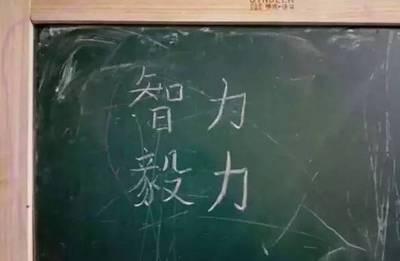 智力
毅力